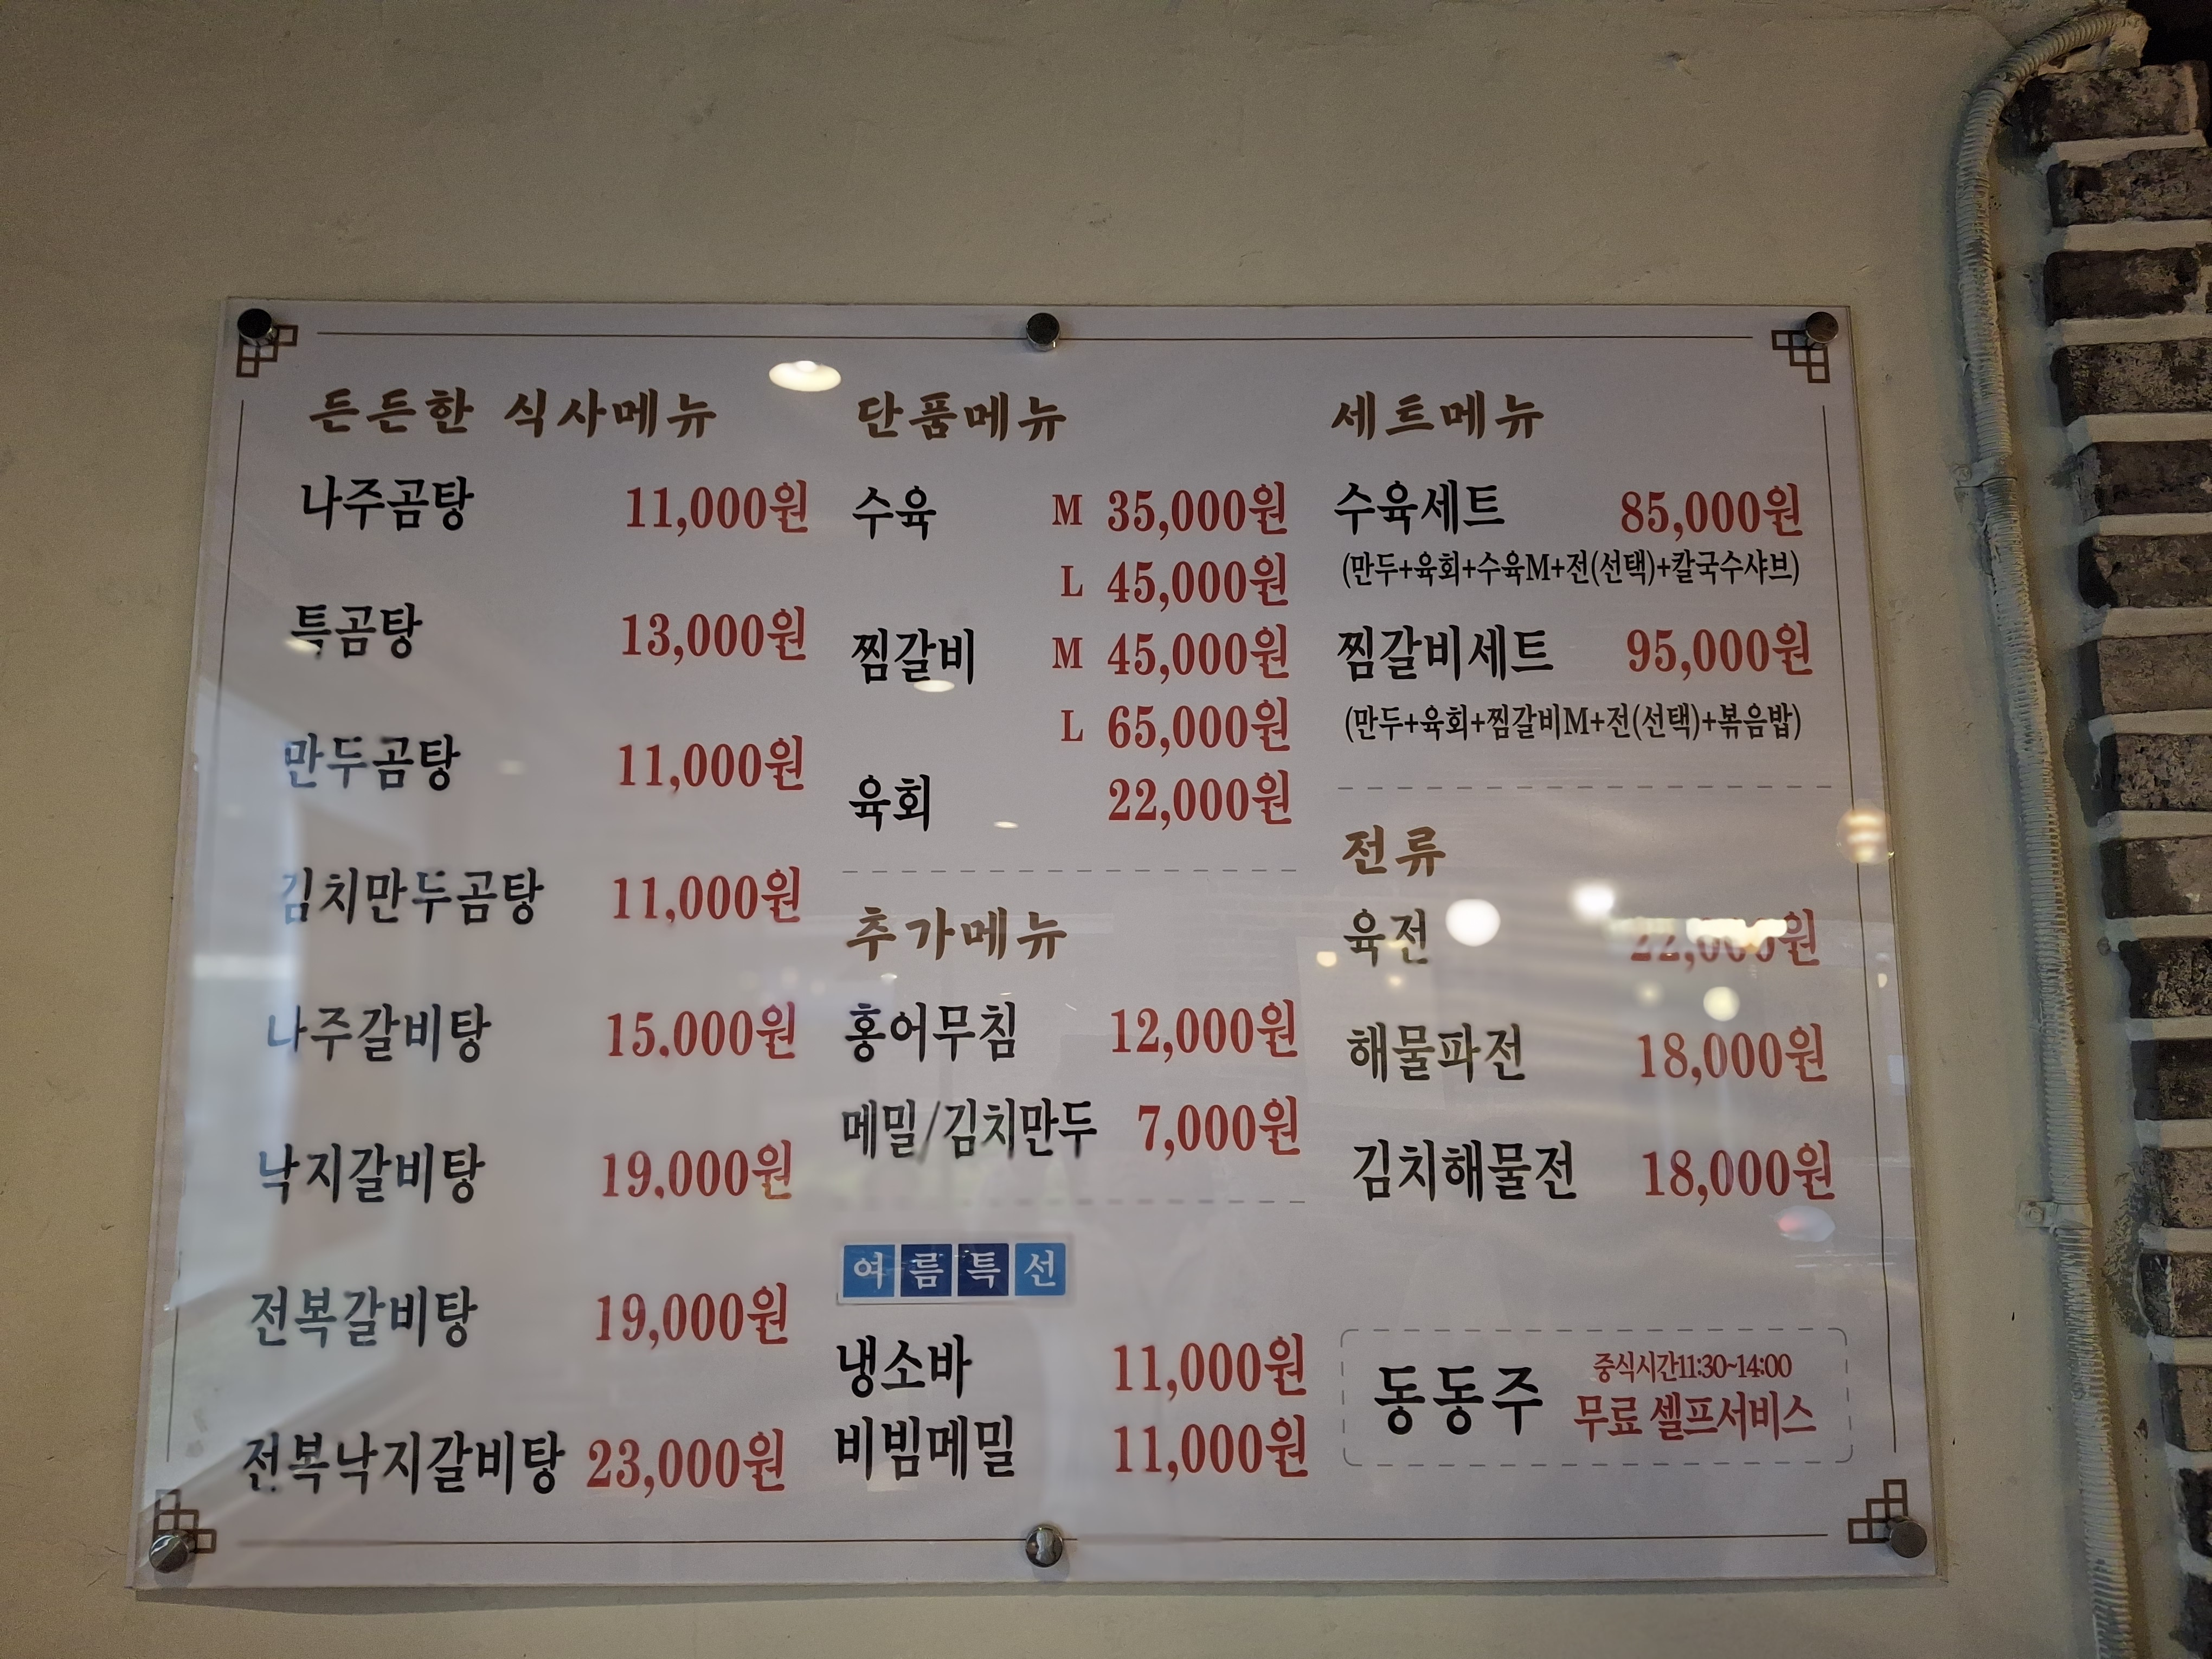 든든한 식사메뉴
나주곰탕 11,000원
특곰탕 13,000원
만두곰탕 11,000원
김치만두곰탕 11,000원
나주갈비탕 15,000원
낙지갈비탕 19,000원
전복갈비탕 19,000원
전복낙지갈비탕 23,000원
단품메뉴
수육 M 35,000원
L 45,000원
찜갈비 M 45,000원
L 65,000원
육회 22,000원
추가메뉴
홍어무침 12,000원
메밀/김치만두 7,000원
여름특선
냉소바 11,000원
비빔메밀 11,000원
세트메뉴
수육세트 85,000원
(만두+육회+수육M+전(선택)+칼국수샤브)
찜갈비세트 95,000원
(만두+육회+찜갈비M+전(선택)+볶음밥)
전류
육전 22,000원
해물파전 18,000원
김치해물전 18,000원
동동주 중식시간11:30~14:00
무료 셀프서비스